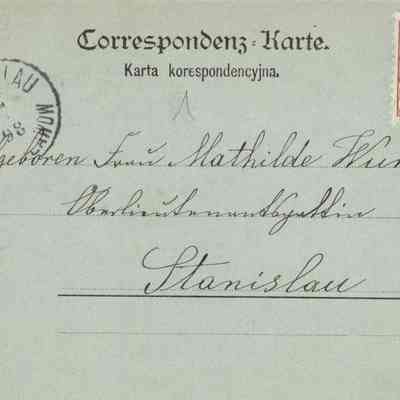 Correspondenz-Karte.
Karta korespondencyjna.
1
LAU
geboren Frau Mathilde Wun
Oberlieutenantsgattin
Stanislau